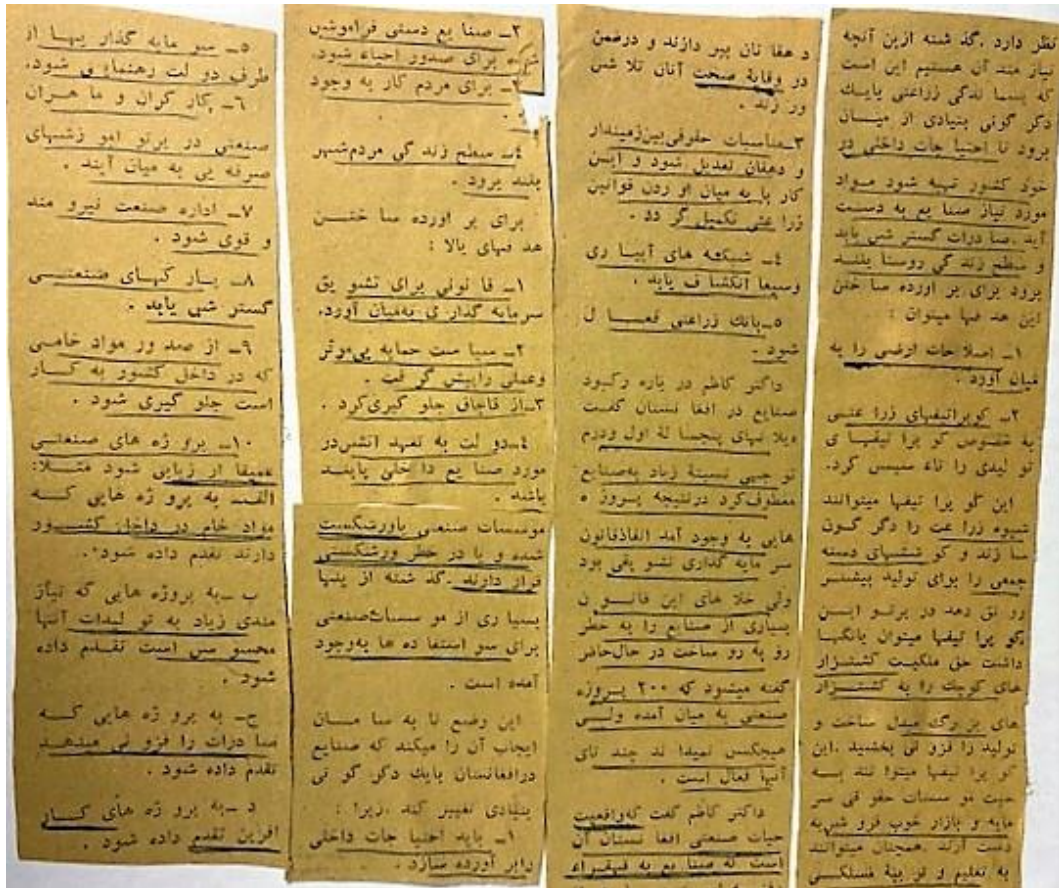 نظر دارد . گذ شته ازین آنچه
نیاز مند آن هستیم این است
که بسا ندگی زراعتی بایک
دگر گونی بنیادی از میان
برود تا احتیا جات داخلی در
خود کشور تهیه شود مواد
مورد نیاز صنا یع به دست
آید . صا درات گستر شی یابد
و سطح زند گی روستا بلند
برود برای بر آورده سا ختن
این هد فها میتوان :
۱ـ اصلا حات ارضی را به
میان آورد .
۲ـ کوپراتیفهای زرا عتی
به خصوص کو پرا تیفها ی
تو لیدی را تاء سیس کرد.
این کو پرا تیفها میتوانند
شیوه زرا عت را دگر گون
سا زند و کو ششهای دسته
جمعی را برای تولید بیشتر
رو نق دهد در پرتو این
کو پرا تیفها میتوان بانگهدا
داشت حق ملکیت کشتزار
های کوچک را به کشتزار
های بزرگ مبدل ساخت و
تولید را فزو نی بخشید . این
کو پرا تیفها میتوا نند به
حیث مو سسات حقو قی سر
مایه و بازار خوب فرو ش به
دست آرند . همچنان میتوانند
به تعلیم و تر بیۀ مسلکی
د هقا نان بپر دازند و درضمن
در وقایۀ صحت آنان تلا ش
ور زند .
۳ـ مناسبات حقوقی بین زمیندار
و دهقان تعدیل شود و این
کار با به میان آو ردن قوانین
زرا عتی تکمیل گر دد .
٤ـ شبکه های آبیا ری
وسیعا انکشا ف یابد .
۵ـ بانک زراعتی فعا ل
شود .
داکتر کاظم در باره رکود
صنایع در افغا نستان گفت
دپلا نهای پنجسا لۀ اول ودوم
تو جهی نسبتۀ زیاد به صنایع
معطوف کرد درنتیجه پروژ ه
هایی به وجود آمد انفاذقانون
سر مایه گذاری تشو یقی بود
ولی خلا های این قانو ن
بسیاری از صنایع را به خطر
رو به رو ساخت در حال حاضر
گفته میشود که ۲۰۰ پروژه
صنعتی به میان آمده ولی
هیچکس نمیدا ند چند تای
آنها فعال است .
داکتر کاظم گفت که واقعیت
حیات صنعتی افغا نستان آن
است که صنا یع به قهقراء
۲ـ صنا یع دستی فراموش
برای صدور احیاء شود.
برای مردم کار به وجود
٤ـ سطح زند گی مردم شهر
بلند برود .
برای بر آورده سا ختن
هد فهای بالا :
۱ـ قا نونی برای تشو یق
سرمایه گذار ی به میان آورد.
۲ـ سیا ست حمایه یی موثر
وعملی را پیش گر فت .
۳ـ از قاچاق جلو گیری کرد .
٤ـ دو لت به تعهد اتش در
مورد صنا یع دا خلی پابند
باشد .
موسسات صنعتی یا ورشکست
شده و یا در خطر ورشکستی
قرار دارند . گذ شته از ینها
بسیا ری از مو سسات صنعتی
برای سو استفا ده ها به وجود
آمده است .
این وضع نا به سا مان
ایجاب آن را میکند که صنایع
درافغانستان بایک دگر گو نی
بنیادی تغییر کند . زیرا :
۱ـ باید احتیا جات داخلی
رابر آورده سازد .
۵ـ سر مایه گذار یها از
طرف دو لت رهنمایی شود.
٦ـ کار گران و ما هران
صنعتی در پرتو آمو زشهای
حرفه یی به میان آیند .
۷ـ اداره صنعت نیرو مند
و قوی شود .
۸ـ پار کهای صنعتی
گستر ش یابد .
۹ـ از صد ور مواد خامی
که در داخل کشور به کار
است جلو گیری شود .
۱۰ـ پرو ژه های صنعتی
عمیقا ار زیابی شود مثلا:
الف ـ به پرو ژه هایی که
مواد خام در داخل کشور
دارند تقدم داده شود .
ب ـ به پروژه هایی که نیاز
مندی زیاد به تو لیدات آنها
محسو س است تقدم داده
شود .
ج ـ به پرو ژه هایی که
صا درات را فزو نی میدهد
تقدم داده شود .
د ـ به پرو ژه های کار
آفرین تقدم داده شود .